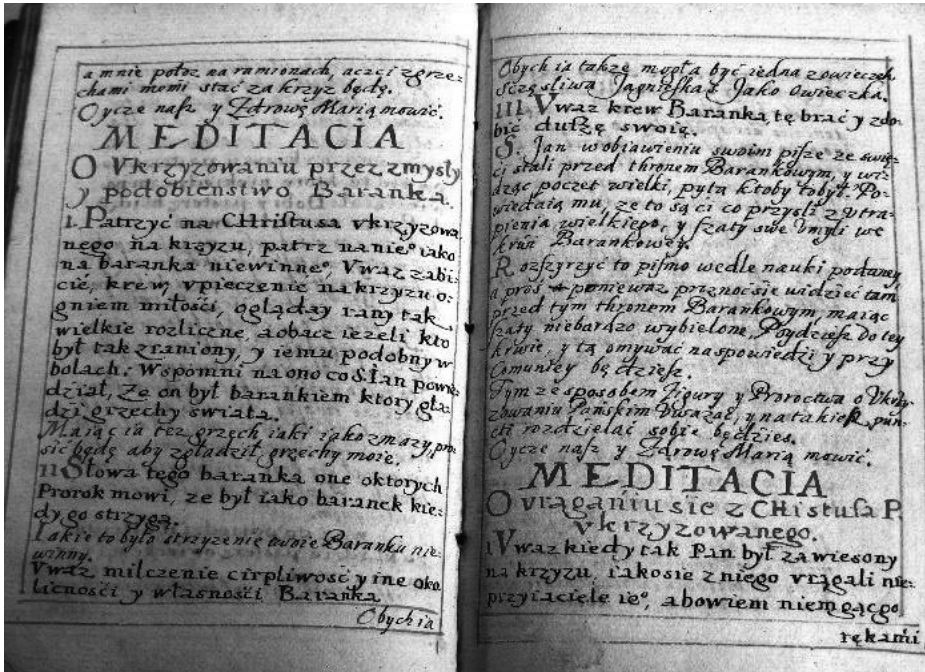 a mnie połoz na ramionach, aczci zgrze-
chami memi stać za krzyz będę.
Oycze nasz y Zdrowę Marią mowić.
MEDITACIA
O Vkrzyzowaniu przez zmysły
y podobienstwo Baranka.
I. Patrzyć na CHristusa vkrzyzowa
nego na krzyzu, patrz nanieº iako
na baranka niewinneº, Vwaz zabi-
cie, krew, vpieczenie na krzyzu o-
gniem miłośći, ogląday rany tak
wielkie rozliczne, aobacz iezeli kto
był tak zraniony, y iemu podobny w
bolach: Wspomni na ono co S. Ian powie
dział, Ze on był barankiem ktory gła-
dzi grzechy swiata.
Maiąc ia tez grzech iaki iako zmazy, pro
sić będę aby zgładził grzechy moie.
II Słowa tego baranka one oktorych
Prorok mowi, ze był iako baranek kie-
dy go strzygą.
Iakie to było strzyzenie twoie Baranku nie-
winny.
Vwaz milczenie cirpliwość y ine oko
licności y własnośći Baranka
Obych ia
Obych ia takze mogła być iedna zowieczek
sczęsliwa Jagnięszka Jako Owieczka.
III. Vwaz krew Baranka, tę brać y zdo-
bić duszę swoią.
S. Jan wobiawieniu swoim pisze ze swię-
ci stali przed thronem Barankowym, y wi-
dząc poczet wielki, pyta ktoby to był. Po-
wiedaią mu, ze to są ci co przysli z vtra-
pienia wielkiego, y szaty swe vmyli we
krwi Barankowey.
Rozszyrzyć to pismo wedle nauki podaney,
a pros ponieważ przynoć sie widzieć tam
przed tym thronem Barankowym, maiąc
szaty niebardzo wybielone, Psydziesz do tey
krwie, y tą omywać naspowiedzi y przy
Comuniey będziesz.
Tym ze sposobem Figury y Proroctwa o Vkrzy
zowaniu Pańskim Vwazać, y na takiesz pun-
cti rozdzielać sobie będzies.
Oycze nasz y Zdrowę Marią mowić.
MEDITACIA
O vrąganiu sie z CHistusa P.
vkrzyzowanego.
I. Vwaz kiedy tak Pan był zawiesony
na krzyzu, iakosie z niego vrągali nie-
przyiaciele ieº, abowiem niemgącgo
rękami